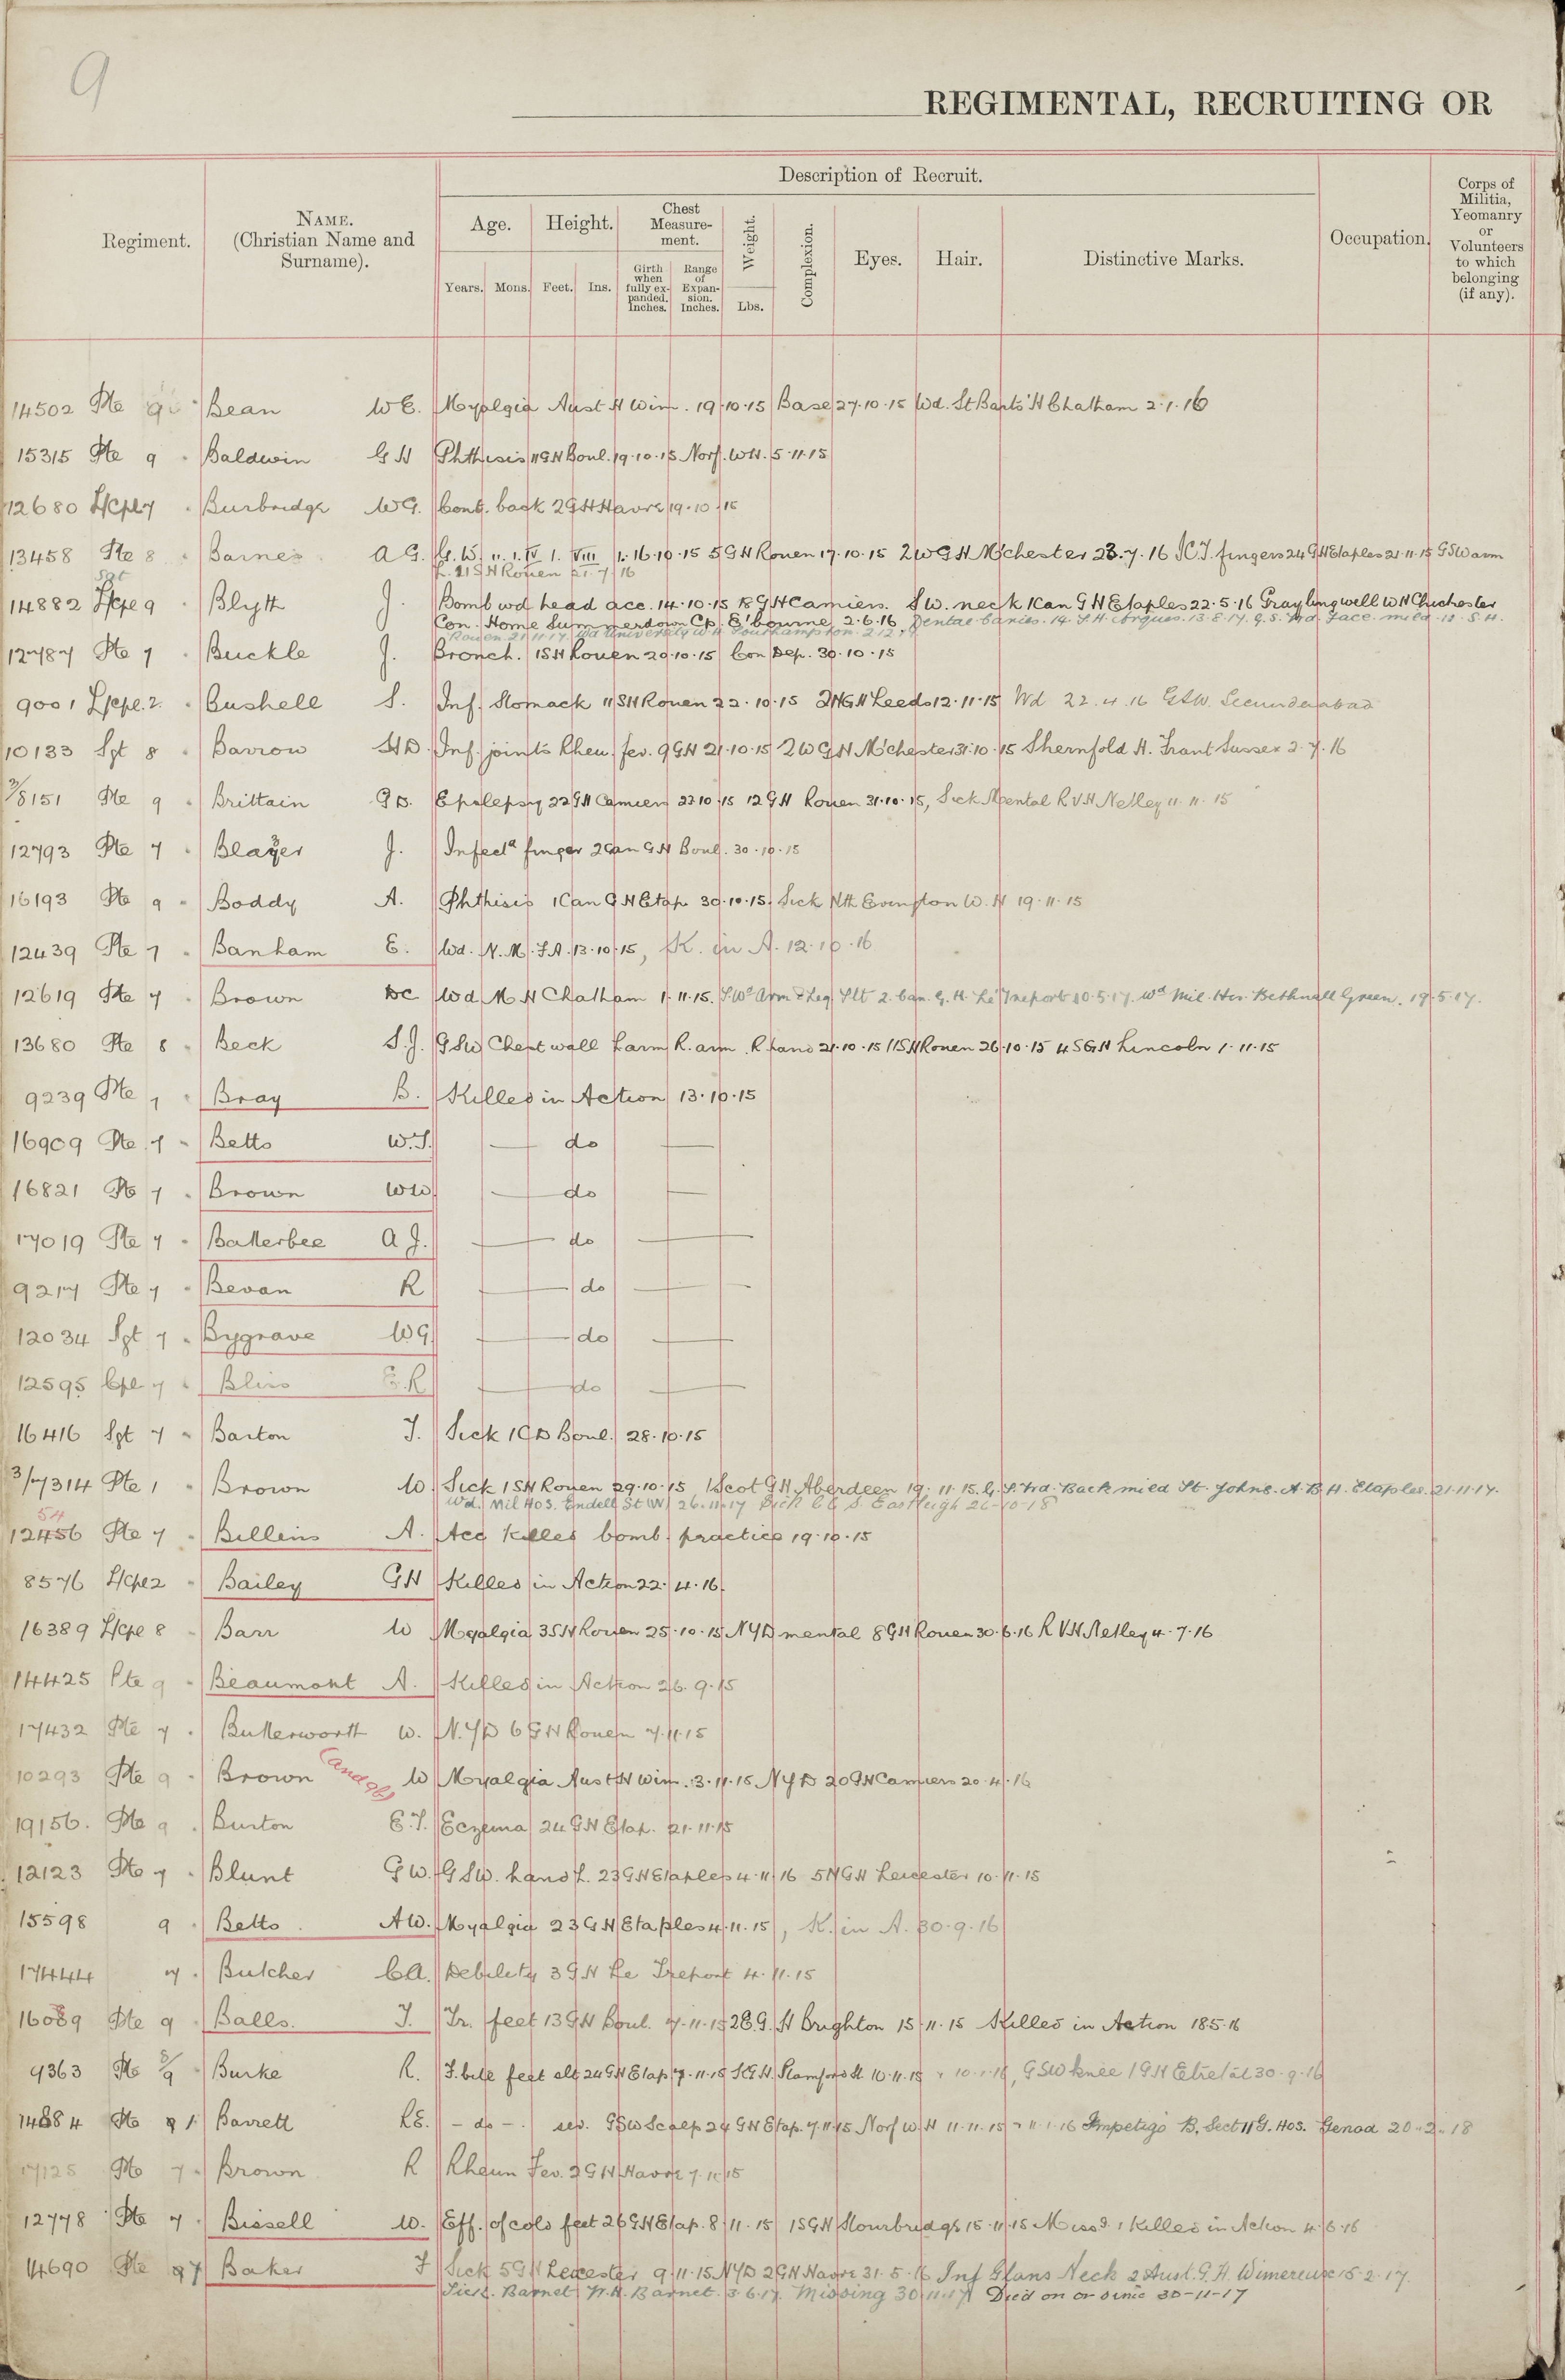 9
REGIMENTAL, RECRUITING OR
Regiment.
NAME.
(Christian Name and
Surname).
Description of Recruit.
Age.
Height.
Chest
Measure-
ment.
Weight.
Complexion.
Eyes.
Hair.
Distinctive Marks.
Occupation.
Corps of
Militia,
Yeomanry
or
Volunteers
to which
belonging
(if any).
Years.
Mons.
Feet.
Ins.
Girth
when
fully ex-
panded.
Inches.
Range
of
Expan-
sion.
Inches.
Lbs.
14502 Pte 9 Bean W E. Myalgia Aust H Wim. 19.10.15 Base 27.10.15 Wd. St Barts' H Chatham 2.1.16
15315 Pte 9 Baldwin G H Phthisis 11 G H Boul. 19.10.15 Norf. W H. 5.11.15
12680 L/Cpl 7 Burbridge W G. Cont. back 2 G H Havre 19.10.15
13458 Pte 8 Barnes A G. G. W. II. I. IV I. VIII I. 16.10.15 5 G H Rouen 17.10.15 2 W G H M'chester 23.7.16 I C T. fingers 24 G H Etaples 21.11.15 G S W arm
L. 11 S H Rouen 21.7.16
Sgt
14882 L/Cpl 9 Blyth J. Bomb wd head acc. 14.10.15 18 G H Camiers. S W. neck 1 Can G H Etaples 22.5.16 Graylingwell W H Chichester
Con. Home Summerdown Cp. E'bourne 2.6.16 Dental Caries. 14. S. H. Arques. 13.8.17. G. S. Wd. Face. mild. 12. S. H.
Rouen 21.11.17. Wd University W. H. Southampton. 2.12.17
12787 Pte 7 Buckle J. Bronch. 1 S H Rouen 20.10.15 Con Dep. 30.10.15
9001 L/Cpl. 2. Bushell S. Inf. Stomack 11 S H Rouen 22.10.15 2 N G H Leeds 12.11.15 Wd 22.4.16 G S W. Secunderabad
10133 Sgt 8 Barrow H D. Inf. joints Rheu. fev. 9 G H 21.10.15 2 W G H M'chester 31.10.15 Shernfold H. Frant Sussex 2.7.16
3/8151 Pte 9 Brittain G D. Epelepsy 22 G H Camiers 22.10.15 12 G H Rouen 31.10.15, Sick Mental R V H Netley 11.11.15
12793 Pte 7 Blazer J. Infectd finger 2 Can G H Boul. 30.10.15
16193 Pte 9 Boddy A. Phthisis 1 Can G H Etap. 30.10.15. Sick Nth Evington W. H 19.11.15
12439 Pte 7 Banham E. Wd. N. M. F A. 13.10.15, K. in A. 12.10.16
12619 Pte 7 Brown D C Wd M H Chatham 1.11.15. S. Wd Arm & Leg Slt 2. Can. G. H. Le Treport 10.5.17. Wd Mil. Hos. Bethnall Green. 19.5.17.
13680 Pte 8 Beck S. J. G S W Chest wall L arm R. arm R hand 21.10.15 11 S H Rouen 26.10.15 4 S G H Lincoln 1.11.15
9239 Pte 7 Bray B. Killed in Action 13.10.15
16909 Pte 7 Betts W. T. do
16821 Pte 7 Brown W W do
17019 Pte 7 Batterbee A J. do
9217 Pte 7 Bevan R do
12034 Sgt 7 Bygrave W G. do
12595 Cpl 7 Bliss E. R do
16416 Sgt 7 Barton T. Sick 1 C D Boul. 28.10.15
3/7314 Pte 1 Brown W. Sick 1 S H Rouen 29.10.15 1 Scot G H Aberdeen 19.11.15. G. S. Wd. Back mild St. Johns. A. B. H. Etaples. 21.11.17.
Wd. Mil Hos. Endell St W 26.11.17 Sick C C S Eastleigh 26-10-18
54
12456 Pte 7 Billens A. Acc Killed bomb. practice 19.10.15
8576 L/Cpl 2 Bailey G H Killed in Action 22.4.16.
16389 L/Cpl 8 Barr W Myalgia 3 S H Rouen 25.10.15 N Y D mental 8 G H Rouen 30.6.16 R V H Netley 4.7.16
14425 Pte 9 Beaumont A. Killed in Action 26.9.15
17432 Pte 7 Butterworth W. N. Y D 6 G H Rouen 7.11.15
10293 Pte 9 Brown W Myalgia Aust H Wim. 3.11.15 N Y D 20 G H Camiers 20.4.16
19156. Pte 9 Burton E. T. Eczema 24 G H Etap. 21.11.15
12123 Pte 7 Blunt G W. G S W. hand L. 23 G H Etaples 4.11.16 5 N G H Leicester 10.11.15
15598 9 Betts A W. Myalgia 23 G H Etaples 4.11.15, K. in A. 30.9.16
17444 7 Butcher C A. Debility 3 G H Le Treport 4.11.15
16089 Pte 9 Balls. T. Tr. feet 13 G H Boul. 7.11.15 2 E. G. H Brighton 15.11.15 Killed in Action 18.5.16
9363 Pte 8/9 Burke R. F. bite feet slt 24 G H Etap 7.11.15 K G H. Stamford St. 10.11.15 10.1.16, G S W knee 1 G H Etretât 30.9.16
14884 Pte 1 Barrett R E. - do - sev. G S W Scalp 24 G H Etap. 7.11.15 Norf W. H 11.11.15 11.1.16 Impetigo B. Sect 11 G. Hos. Genoa 20-2-18
17125 Pte 7 Brown R Rheum Fev. 2 G H Havre 7.11.15
12778 Pte 7 Bissell W. Eff. of cold feet 26 G H Etap. 8.11.15 1 S G H Stourbridge 15.11.15 Missd. Killed in Action 4.6.16
14690 Pte 7 Baker F Sick 5 G H Leicester 9.11.15 N Y D 2 G H Havre 31.5.16 Inf Glans Neck 2 Aust. G. H. Wimereux 15.2.17.
Sick. Barnet W. H. Barnet. 3.6.17. Missing 30.11.17 Died on or since 30-11-17